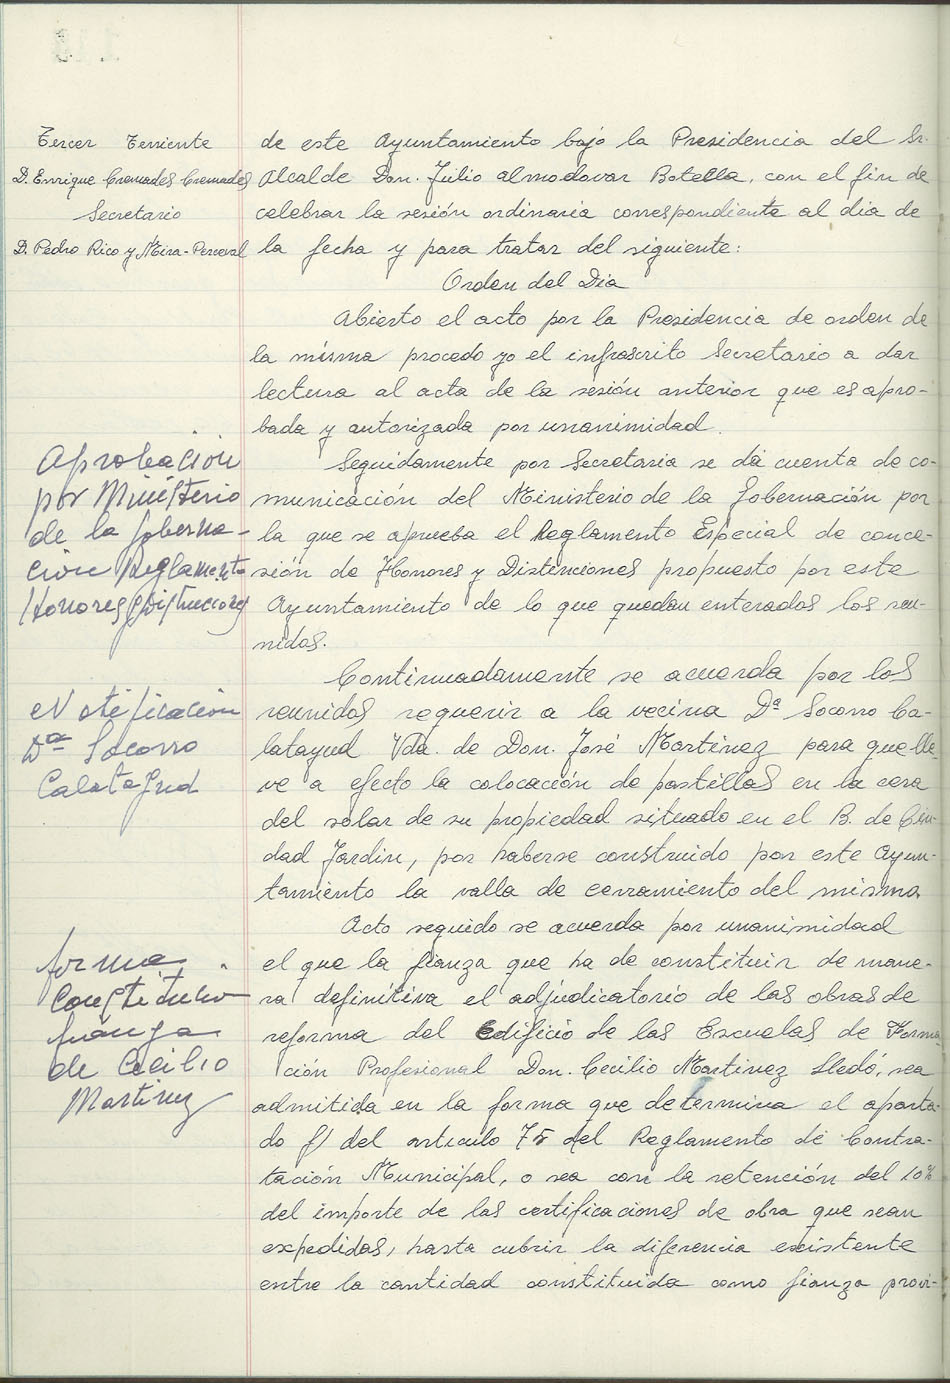 Tercer Teniente
D. Enrique Cremades Cremades
Secretario
D. Pedro Rico y Mira-Perceval
de este Ayuntamiento bajo la Presidencia del Sr.
Alcalde Don. Julio Almodovar Botella, con el fin de
celebrar la sesión ordinaria correspondiente al dia de
la fecha y para tratar del siguiente:
Orden del Dia
Abierto el acto por la Presidencia de orden de
la misma procedo yo el infrascrito Secretario a dar
lectura al acta de la sesión anterior que es apro-
bada y autorizada por unanimidad.
Aprobación
por Ministerio
de la Goberna-
ción Reglamento
Honores y Distinciones
Seguidamente por Secretaria se dá cuenta de co-
municación del Ministerio de la Gobernación por
la que se aprueba el Reglamento Especial de conce-
sión de Honores y Distinciones propuesto por este
Ayuntamiento de lo que quedan enterados los reu-
nidos.
Notificación
Dª Socorro
Calatayud
Continuadamente se acuerda por los
reunidos requerir a la vecina Dª Socorro Ca-
latayud Vda. de Don. José Martinez para que lle-
ve a efecto la colocación de pastillas en la cera
del solar de su propiedad situado en el B. de Ciu-
dad Jardin, por haberse construido por este Ayun-
tamiento la valla de cerramiento del mismo.
forma
Constitución
fianza
de Cecilio
Martinez
Acto seguido se acuerda por unanimidad
el que la fianza que ha de constituir de mane-
ra definitiva el adjudicatorio de las obras de
reforma del Edificio de las Escuelas de Forma-
ción Profesional Don. Cecilio Martinez Lledó, sea
admitida en la forma que determina el aparta-
do f) del articulo 75 del Reglamento de Contra-
tación Municipal, o sea con la retención del 10%
del importe de las certificaciones de obra que sean
expedidas, hasta cubrir la diferencia existente
entre la cantidad constituida como fianza provi-